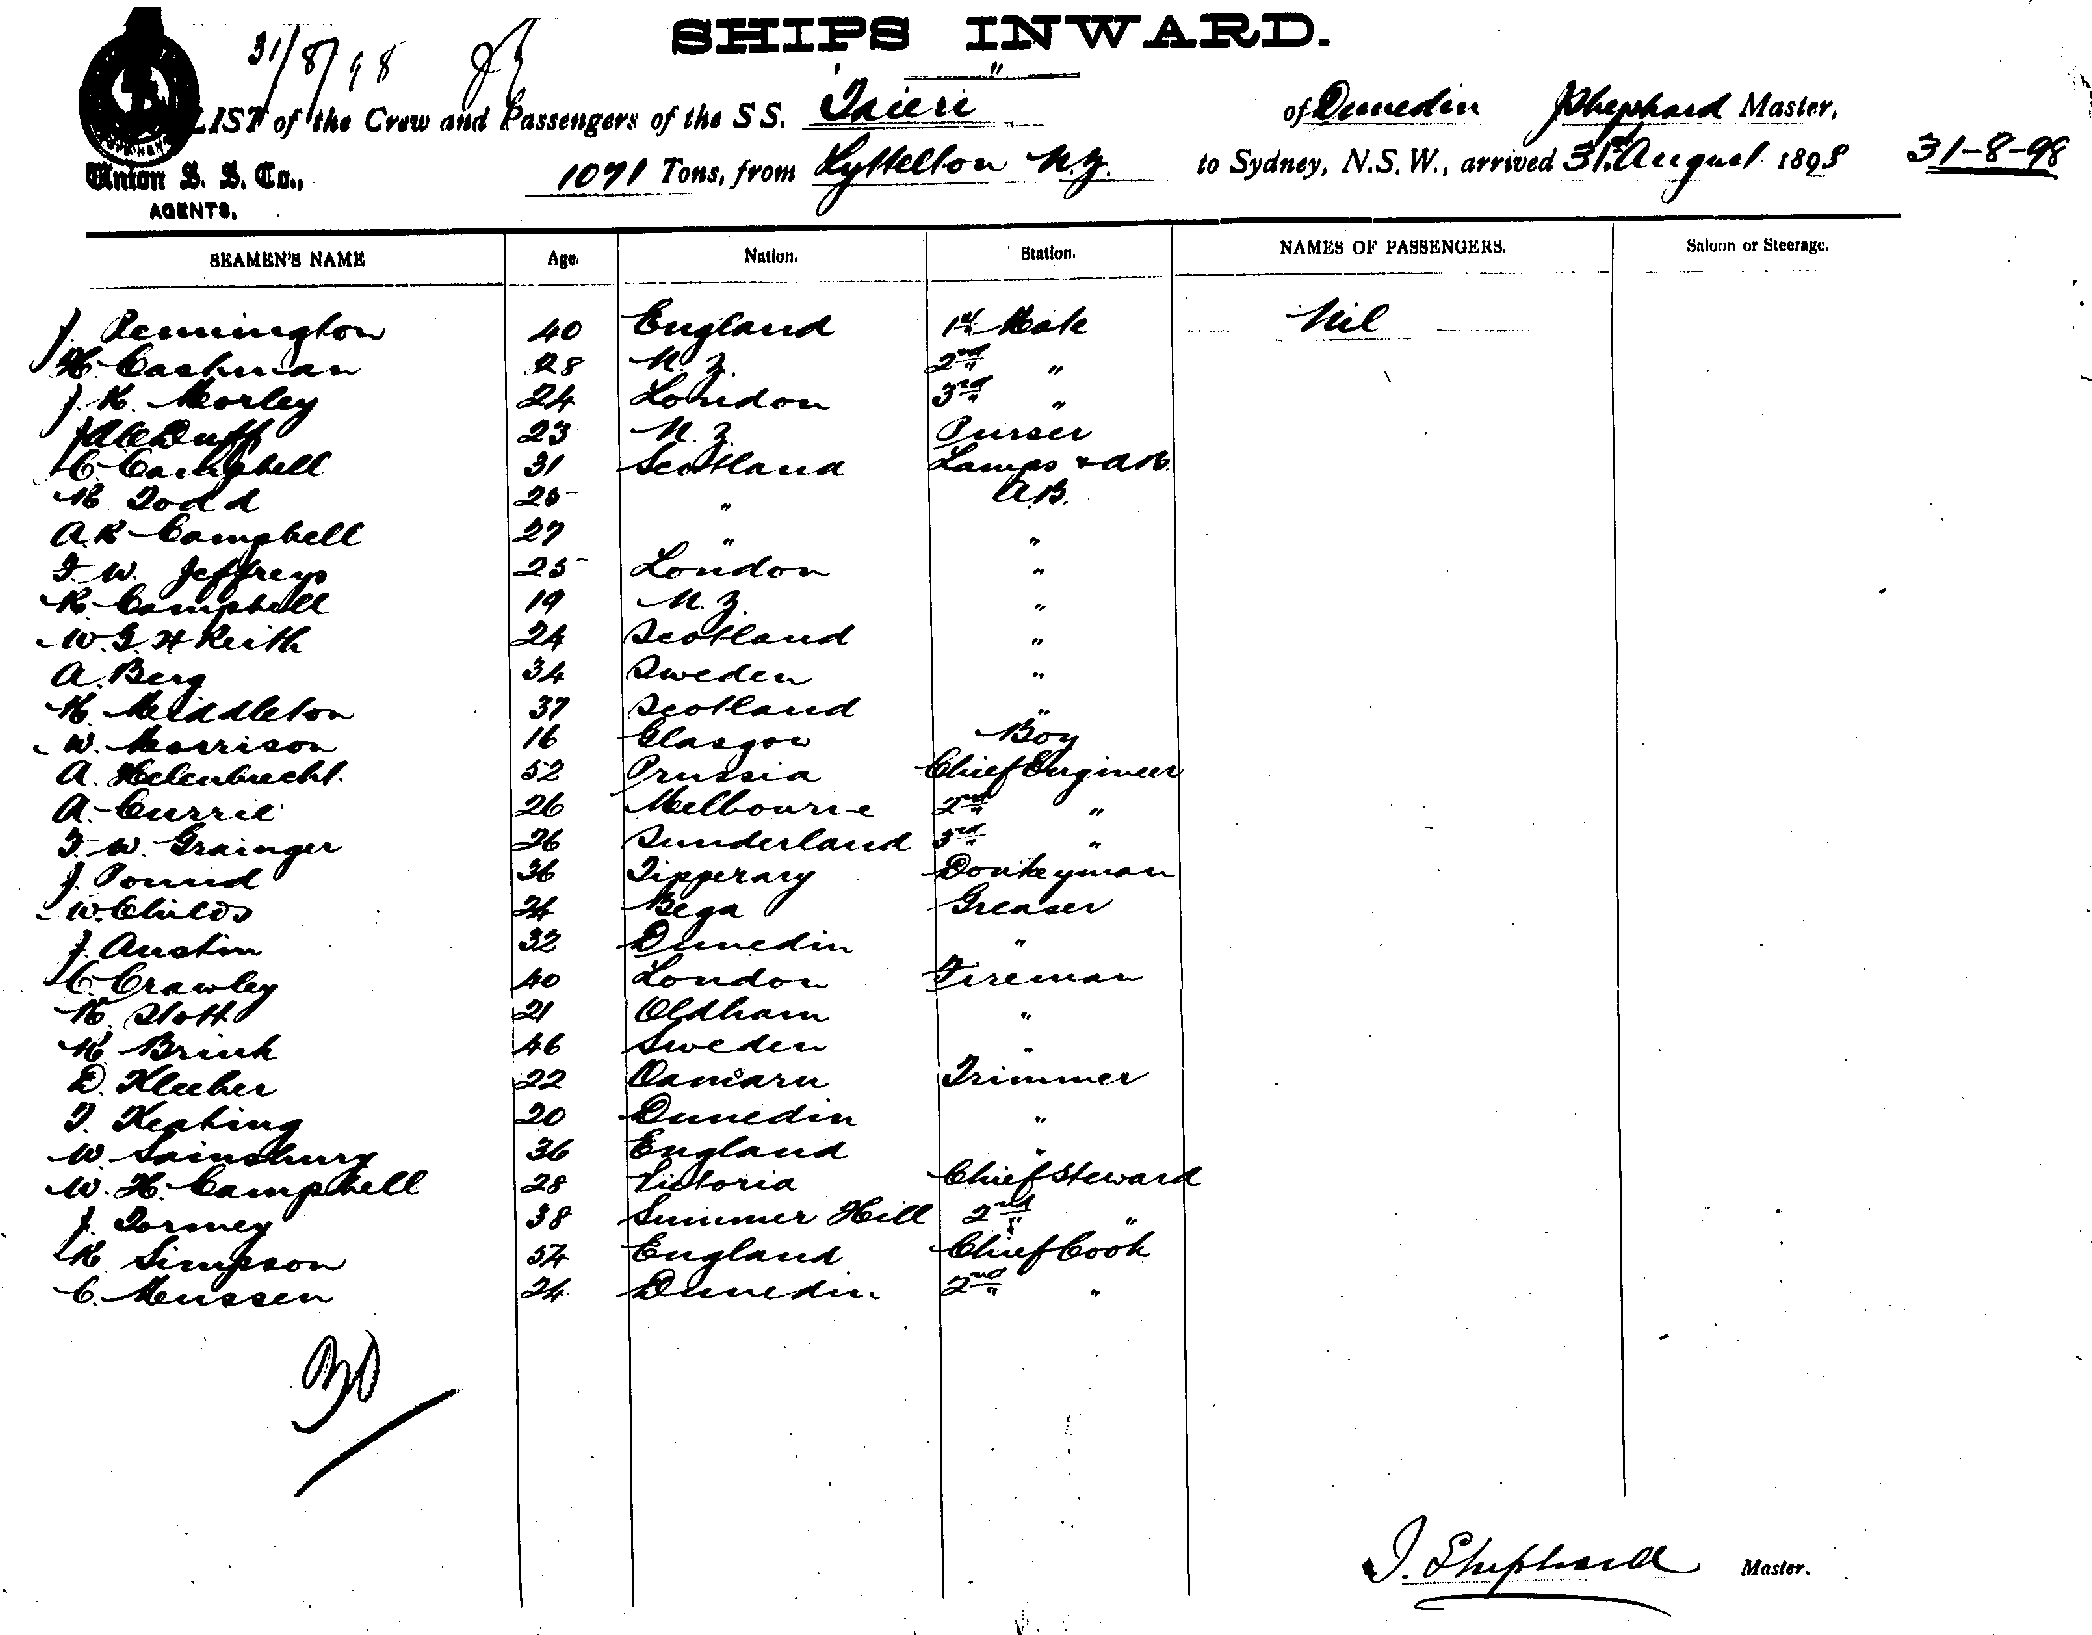 31/8/98
SHIPS INWARD.
LIST of the Crew and Passengers of the SS. Taieri of Dunedin J Shephard Master,
Union S. S. Co., 1071 Tons, from Lyttelton N.Z. to Sydney, N.S.W., arrived 31st August 1898 31-8-98
AGENTS.
SEAMEN'S NAME Age. Nation. Station. NAMES OF PASSENGERS. Saloon or Steerage.
J. Pennington 40 England 1st Mate Nil
H. Cashman 28 N.Z. 2nd "
J. H. Morley 24 London 3rd "
Duff 23 N.Z. Purser
C. Campbell 31 Scotland Lamps & A.B.
Todd 25 " A.B.
A.R. Campbell 27 " "
F. W. Jeffreys 25 London "
R. Campbell 19 N.Z. "
W. G. H Keith 24 Scotland "
A. Berg 34 Sweden "
H. Middleton 37 Scotland "
W. Morrison 16 Glasgow Boy
A. Helenbrecht. 52 Prussia Chief Engineer
A. Currie 26 Melbourne 2nd "
F. W. Grainger 26 Sunderland 3rd "
J. Pound 36 Tipperary Donkeyman
W. Childs 24 Bega Greaser
J. Austin 32 Dunedin "
C. Crawley 40 London Fireman
Stott 21 Oldham "
Brink 46 Sweden "
D. Kleeber 22 Oamaru Trimmer
T. Keating 20 Dunedin "
W. Sainsbury 36 England "
W. H. Campbell 28 Victoria Chief Steward
J. Tormey 38 Summer Hill 2nd "
H. Simpson 54 England Chief Cook
C. Mussen 24 Dunedin 2nd "
30
J. Shephard Master.